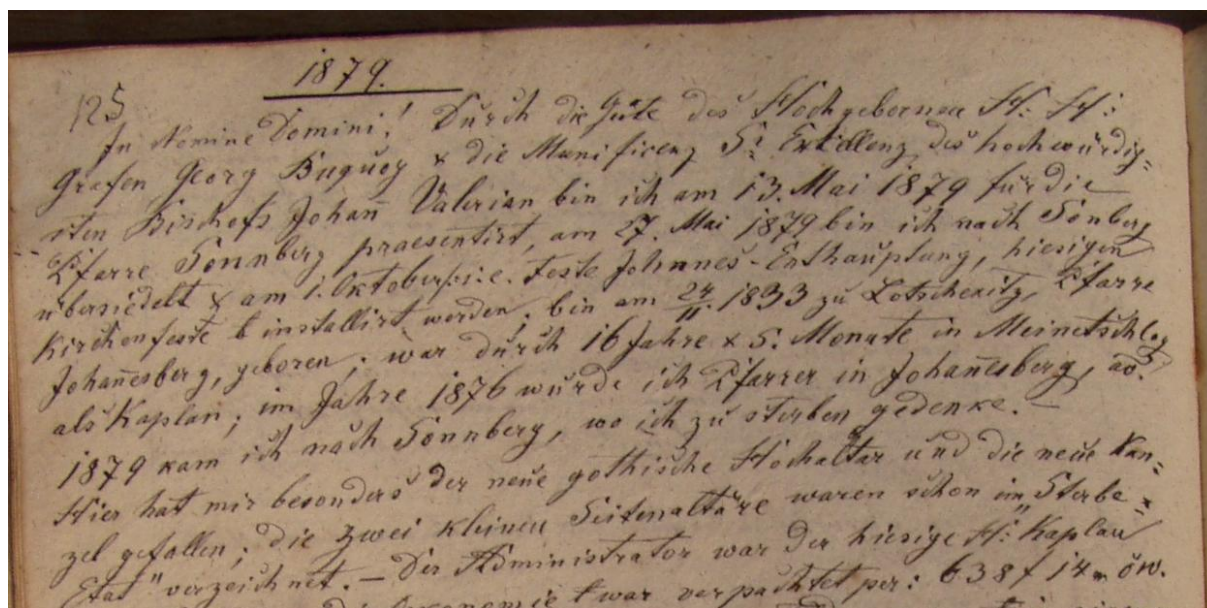 1879.
125
In Nomine Domini! Durch die Güte des Hochgebornen H: H:
Grafen Georg Buquoy & die Munificenz Sr Exzellenz des hochwürdig=
sten Bischofs Johañ Valerian bin ich am 13. Mai 1879 für die
Pfarre Sonnberg praesentirt, am 27. Mai 1879 bin ich nach Sonberg
übersiedelt & am 1. Oktober, i. e. Feste Johannes-Enthauptung, hiesigen
Kirchenfeste installirt worden; bin am 24/11. 1833 zu Lotschenitz, Pfarre
Johañesberg, geboren; war durch 16 Jahre & 5. Monate in Meinetschlag
als Kaplan; im Jahre 1876 wurde ich Pfarrer in Johañesberg, ao.
1879 kam ich nach Sonnberg, wo ich zu sterben gedenke. –
Hier hat mir besonders der neue gothische Hochaltar und die neue Kan=
zel gefallen; die zwei kleinen Seitenaltäre waren schon im „Sterbe
Etat" verzeichnet. – Der Administrator war der hiesige H: Kaplan
war verpachtet per: 638 f 14 öw.